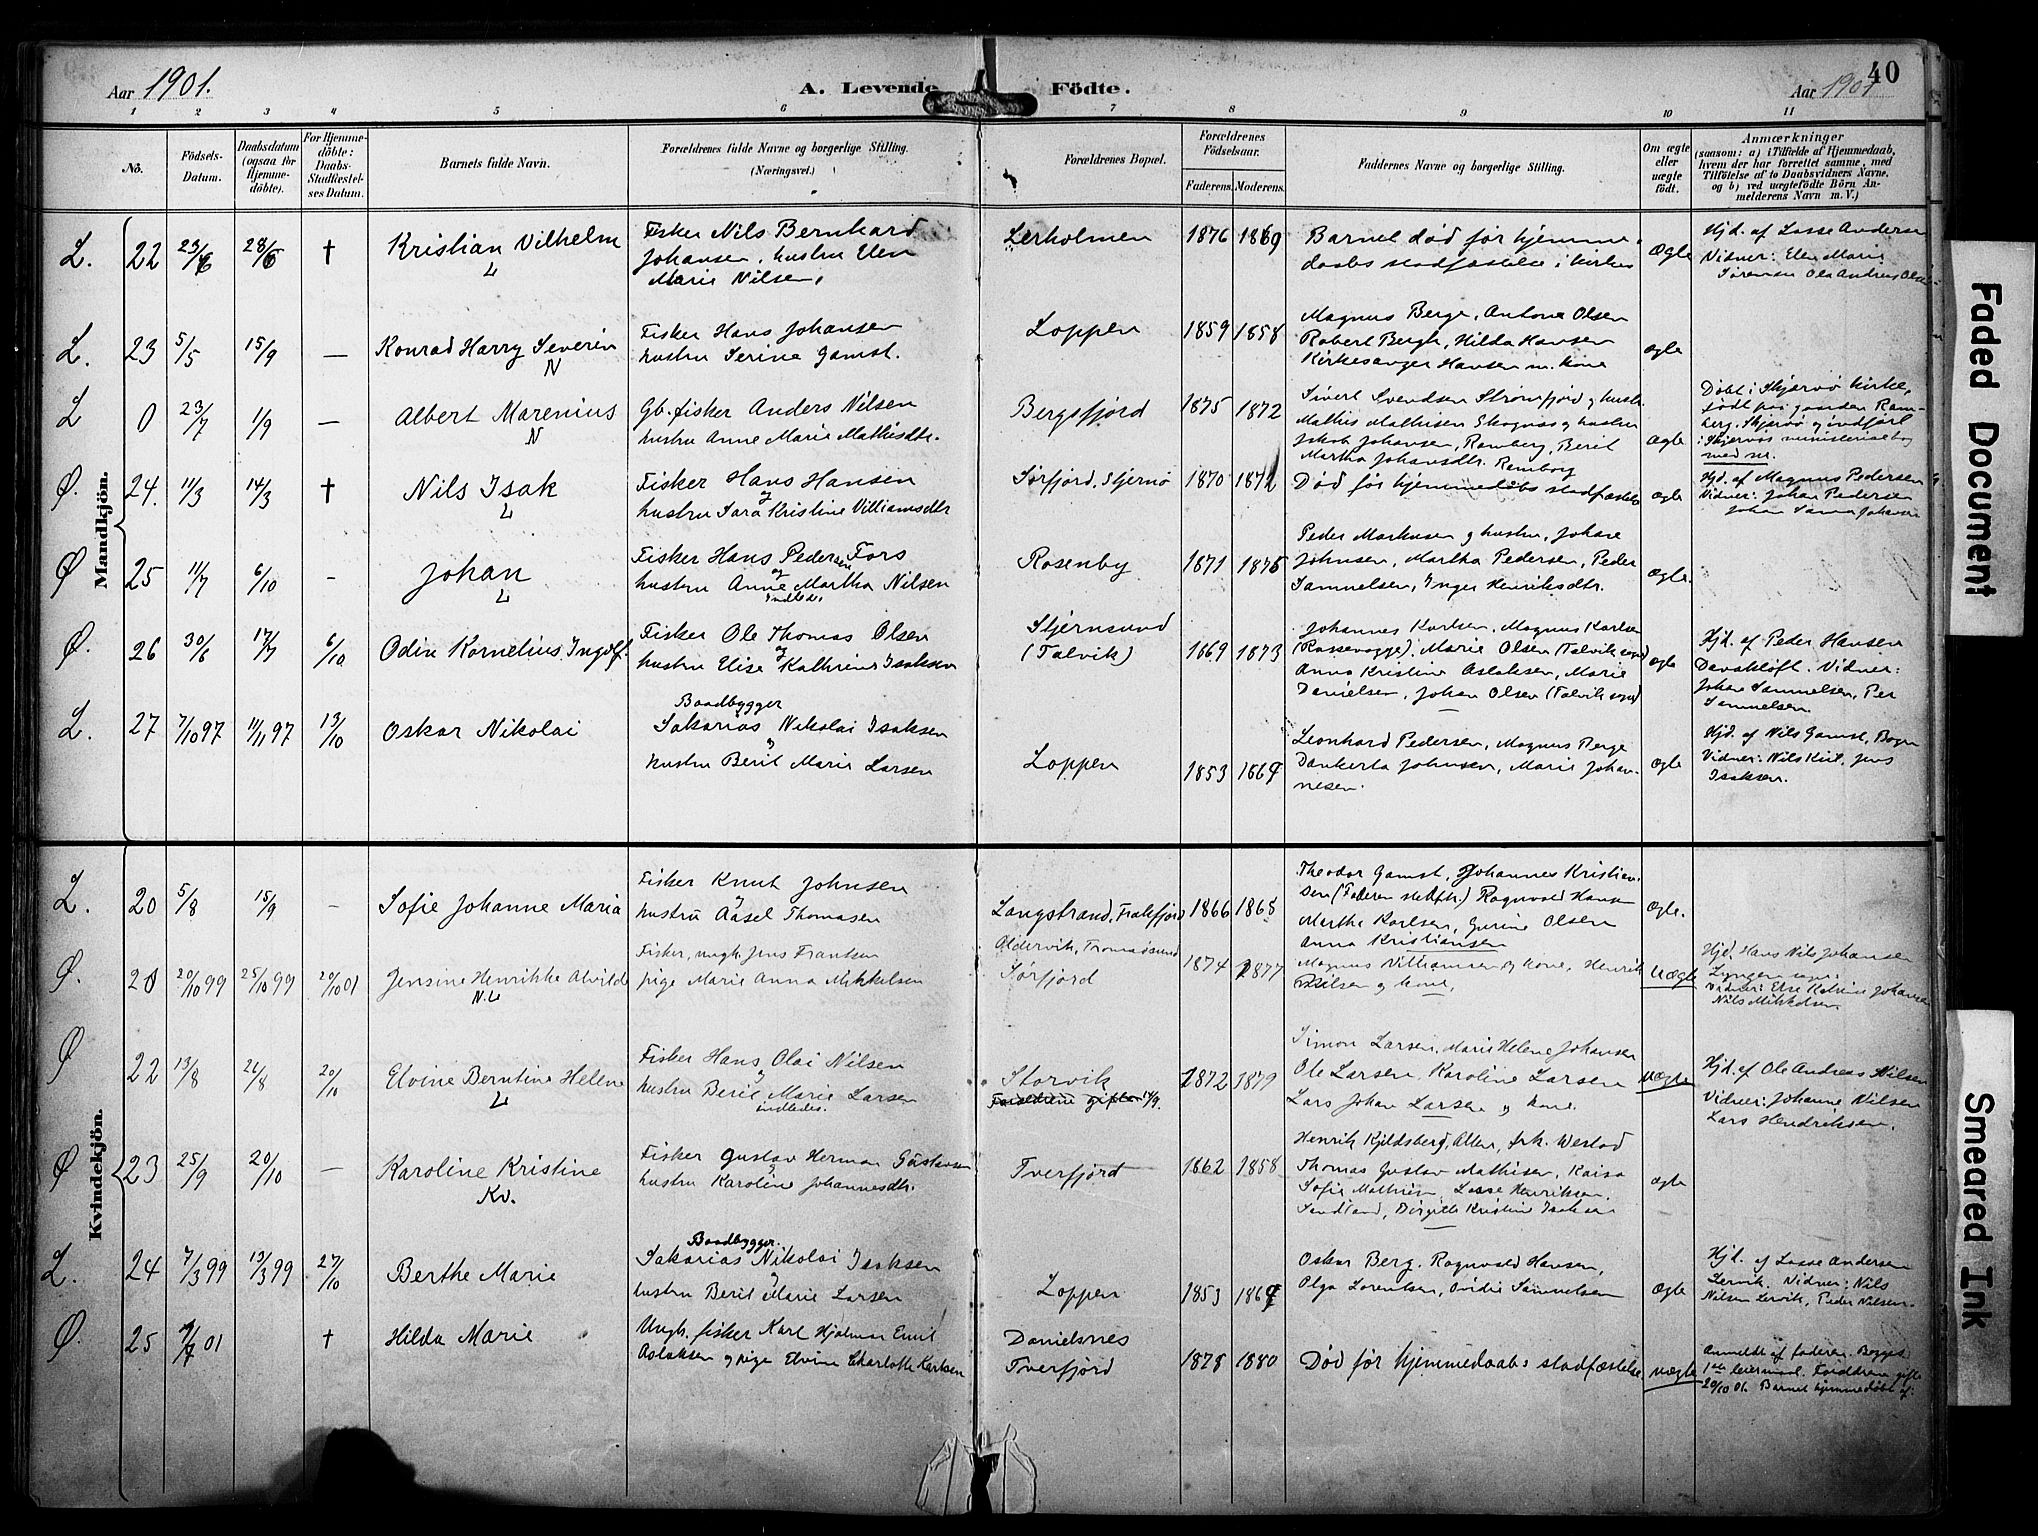 Aar 1901.
A. Levende Födte.
Aar 1901
40
1 2 3 4 5 6 7 8 9 10 11
No.
Födsels-
Datum.
Daabsdatum
(ogsaa for
Hjemme-
döbte).
For Hjemme-
döbte:
Daabs-
Stadfæstel-
ses Datum.
Barnets fulde Navn.
Forældrenes fulde Navne og borgerlige Stilling.
(Næringsvei.)
Forældrenes Bopæl.
Forældrenes
Födselsaar.
Faderens. Moderens.
Faddernes Navne og borgerlige Stilling.
Om ægte
eller
uægte
födt.
Anmærkninger
(saasom: a) i Tilfælde af Hjemmedaab,
hvem der har forrettet samme, med
Tilföielse af to Daabsvidners Navne.
og b) ved uægtefödte Börn An-
melderens Navn m. V.)
Mandkjön.
L. 22 23/6 28/6 † Kristian Vilhelm
L
Fisker Nils Bernhard
Johansen, hustru Elen
Marie Nilsen.
Lerholmen 1876 1869
Barnet død før hjemme-
daabs stadfæstelse i kirken
ægte
Hjd. af Lasse Andersen
Vidner: Elen Marie
Sørensen Ole Andreas Olsen
L. 23 5/5 15/9 — Konrad Harry Severin
N
Fisker Hans Johansen
hustru Serine Gamst.
Loppen 1859 1858
Magnus Berge, Antone Olsen
Robert Bergh, Hilda Hansen
Kirkesanger Hansen m. kone
ægte
L 0 23/7 1/9 — Albert Marenius
N
Gb. fisker Anders Nilsen
hustru Anne Marie Mathisdtr.
Bergsfjord 1875 1872
Sivert Svendsen Strømfjord og hustr.
Mathis Mathisen Skognes og hustru
Jakob Johansen, Ramberg, Berit
Martha Johansdtr. Ramberg
ægte
Døbt i Skjervø kirke,
født paa gaarden Ram-
berg, Skjervø og indført
i Skjervøs ministerialbog
med nr.
Ø. 24. 11/3 14/3 † Nils Isak
L
Fisker Hans Hansen
og
hustru Sara Kristine Villiamsdtr
Sørfjord, Stjernø 1870 1872
Død før hjemmedaabs stadfæstelse
ægte
Hjd. af Magnus Pedersen
Vidner: Johan Pedersen
Johan Samu Johansen
Ø 25 11/7 6/10 – Johan
L
Fisker Hans Pedersen Fors
og
hustru Anne Martha Nilsen
indledes.
Rosenby 1871 1876
Peder Markusen og hustru, Johan
Johnsen, Martha Pedersen, Peder
Samuelsen, Inger Henriksdtr.
ægte.
Ø. 26 30/6 17/7 6/10 Odin Kornelius Ingolf.
Fisker Ole Thomas Olsen
og
hustru Elise Kathrine Isaksen
Stjernsund
(Talvik) 1869 1873
Johannes Karlsen, Magnus Karlsen
(Rassevagge), Marie Olsen (Talvik sogn)
Anna Kristine Aslaksen, Marie
Danielsen, Johan Olsen (Talvik sogn)
ægte
Hjd. af Peder Hansen
Davskløft. Vidner:
Johan Samuelsen, Per
Samuelsen.
L. 27 7/10 97 11/11 97 13/10 Oskar Nikolai
Baadbygger
Sakarias Nikolai Isaksen
og
hustru Berit Marie Larsen
Loppen 1853 1869
Leonhard Pedersen, Magnus Berge
Dankerta Johnsen, Marie Johan-
nesen.
ægte
Hjd. af Nils Gamst, Bogn
Vidner: Nils Kiil, Jens
Isaksen.
Kvindekjön.
L. 20 5/8 15/9 – Sofie Johanne Maria
Fisker Knut Johnsen
og
hustru Aasel Thomasen
Langstrand, Frakfjord 1866 1865
Theodor Gamst, Johannes Kristian-
sen (Faderen sted.) Ragnvald Hansen
Martha Karlsen, Gurine Olsen
Anna Kristiansen
ægte.
Ø. 21 20/10 99 25/10 99 20/10 01 Jensine Henrikke Alvilde
N.L
Fisker, ungk. Jens Frantsen
pige Marie Anna Mikkelsen
Oldervik, Tromsøsund
Sørfjord 1874 1877
Magnus Villiamsen og kone, Henrik
Nilsen og kone.
Uægte
Hjd. Hans Nils Johansen
Lyngen sogn.
Vidner: Else Katrine Johansen
Nils Mikkelsen
Ø 22 13/8 26/8 20/10 Elvine Berntine Helene
L
Fisker Hans Olai Nilsen
og
hustru Berit Marie Larsen
indledes.
Storvik
Forældrene gifte 14/9.
1872 1879
Simon Larsen, Marie Helene Johansen
Ole Larsen, Karoline Larsen
Lars Johan Larsen og kone.
uægte
Hjd. af Ole Andreas Nilsen
Vidner: Johanne Nilsen
Lars Hendriksen.
Ø 23 25/9 20/10 — Karoline Kristine
Kv.
Fisker Gustav Herman Gustavsen
og
hustru Karoline Johannesdtr.
Tverfjord 1862 1858
Henrik Kjeldsberg, Alten, frk. Westad
Thomas Gustav Mathisen, Kaisa
Sofie Mathisen, Lasse Henriksen,
Sandland, Birgitte Kristine Isaksen
ægte
L. 24 7/3 99 13/3 99 27/10 Berthe Marie
Baadbygger.
Sakarias Nikolai Isaksen
og
hustru Berit Marie Larsen
Loppen 1853 1869
Oskar Berg, Ragnvald Hansen,
Olga Lorentsen, Ovidie Samuelsen
ægte
Hjd. af Lasse Andersen
Lervik. Vidner: Nils
Nilsen Lervik, Peder Nilsen.
Ø. 25 /7 01 † Hilda Marie
Ungk. fisker Karl Hjalmar Emil
Aslaksen og pige Elvine Charlotte Karlsen
Danielsnes
Tverfjord 1878 1880
Død før hjemmedaabs stadfæstelse
uægte
Anmeldt af faderen. Begges
1ste leiermaal. Forældrene gifte
20/10 01. Barnet hjemmedøbt af:
Faded Document
Smeared Ink